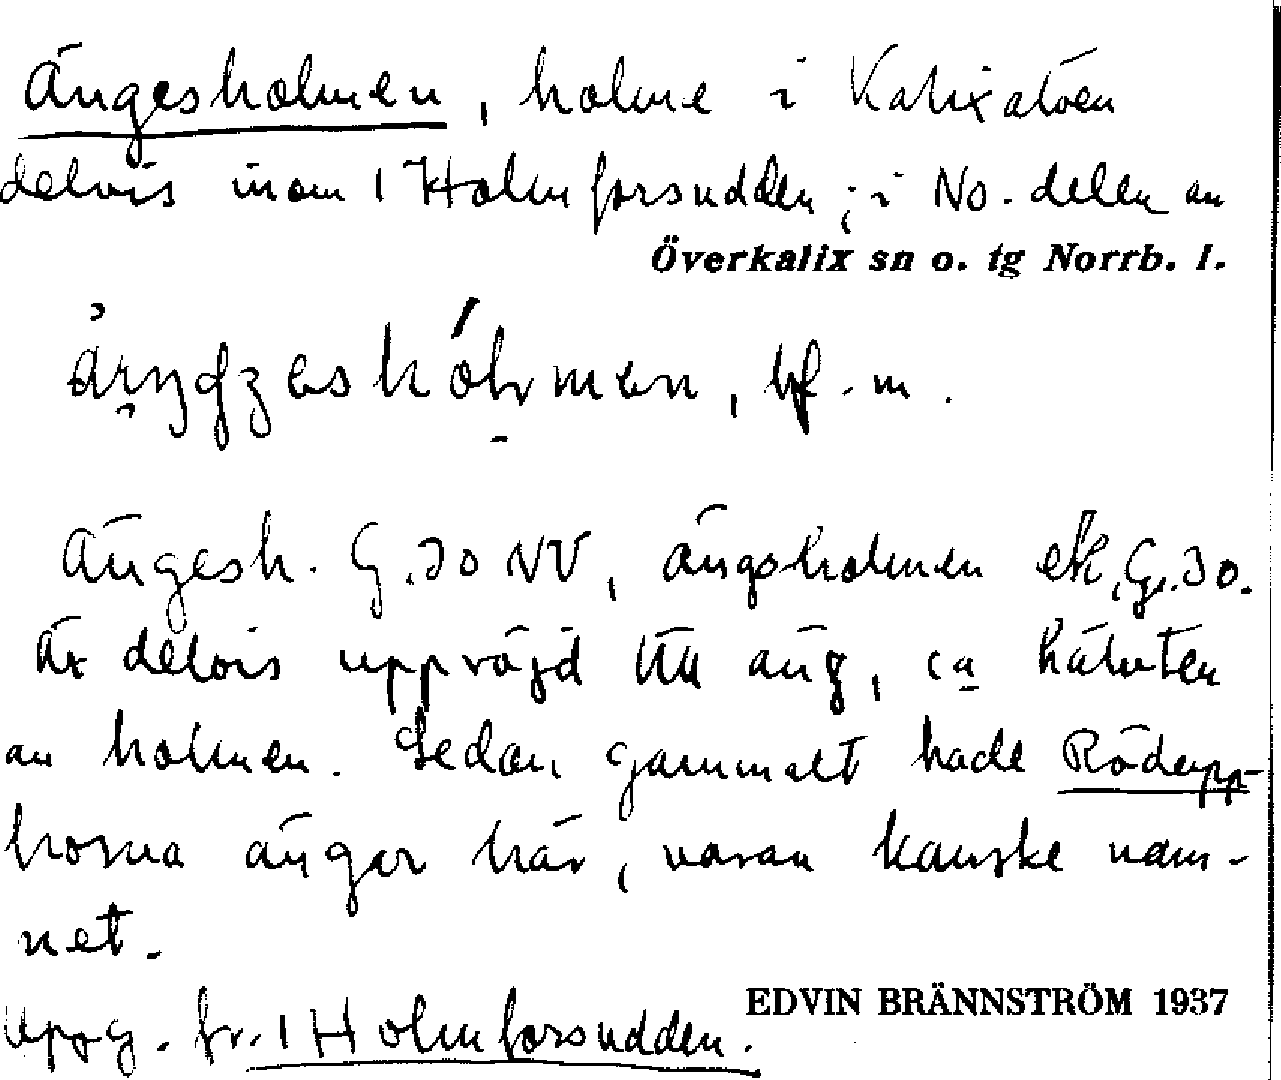 Ängesholmen, holme i Kalixälven
delvis inom 1 Holmforsudden; i NO. delen av
Överkalix sn o. tg Norrb. l.
bf. m.
Ängesh. G. 30 NV, ängsholmen ek. G. 30.
Är delvis uppröjd till äng, ca hälvten
av holmen. Sedan gammalt hade Rödupp-
borna ängar här, varav kanske nam-
net.
Uppg. fr. 1 Holmforsudden.
EDVIN BRÄNNSTRÖM 1937